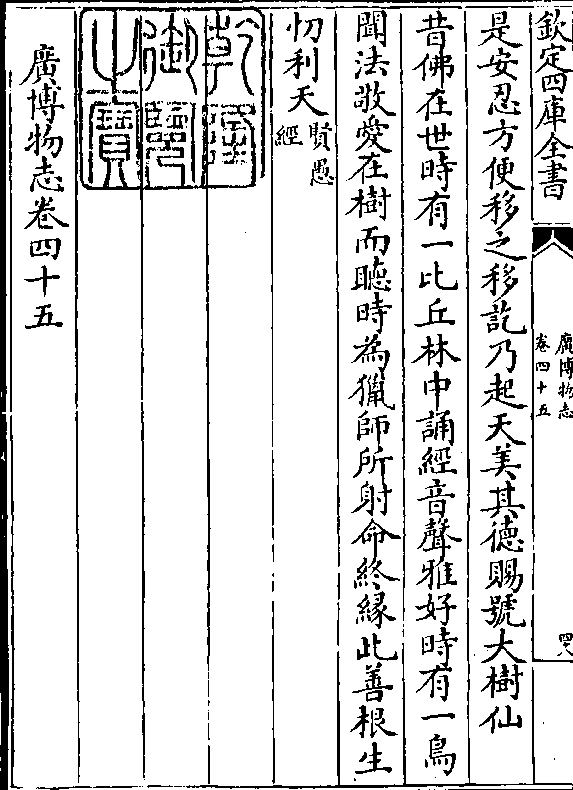 欽定四庫全書
廣博物志
卷四十五
四八
是安忍方便移之移訖乃起天美其德賜號大樹仙
昔佛在世時有一比丘林中誦經音聲雅好時有一鳥
聞法敬愛在樹而聽時為獵師所射命終緣此善根生
忉利天賢愚
經
乾隆
御覽
之寶
廣博物志卷四十五